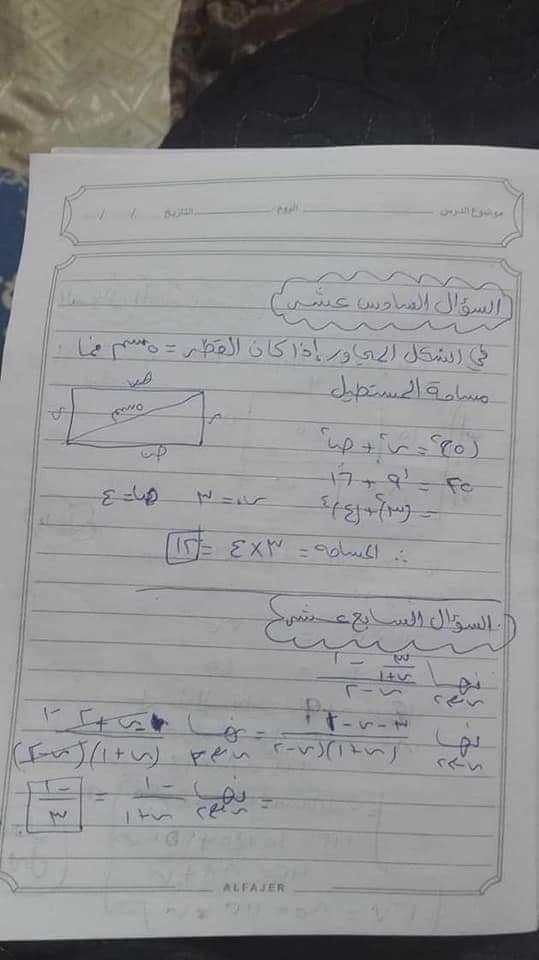 موضوع الدرس اليوم التاريخ / /
السؤال السادس عشر
في الشكل المجاور إذا كان القطر = ٥سم فما
مساحة المستطيل
ص
س ٥سم س
ص
(٥)² = س² + ص²
٢٥ = ٩ + ١٦
= (٣)² + (٤)² س = ٣ ص = ٤
∴ المساحة = ٣ × ٤ = ١٢
السؤال السابع عشر
نهـــا س←٢ (٣/(س+١) − ١)/(س−٢)
نهـــا س←٢ (٣ − س − ١)/((س+١)(س−٢)) = نهـــا س←٢ (−س+٢)/((س+١)(س−٢))
= نهـــا س←٢ −١/(س+١) = −١/٣
ALFAJER